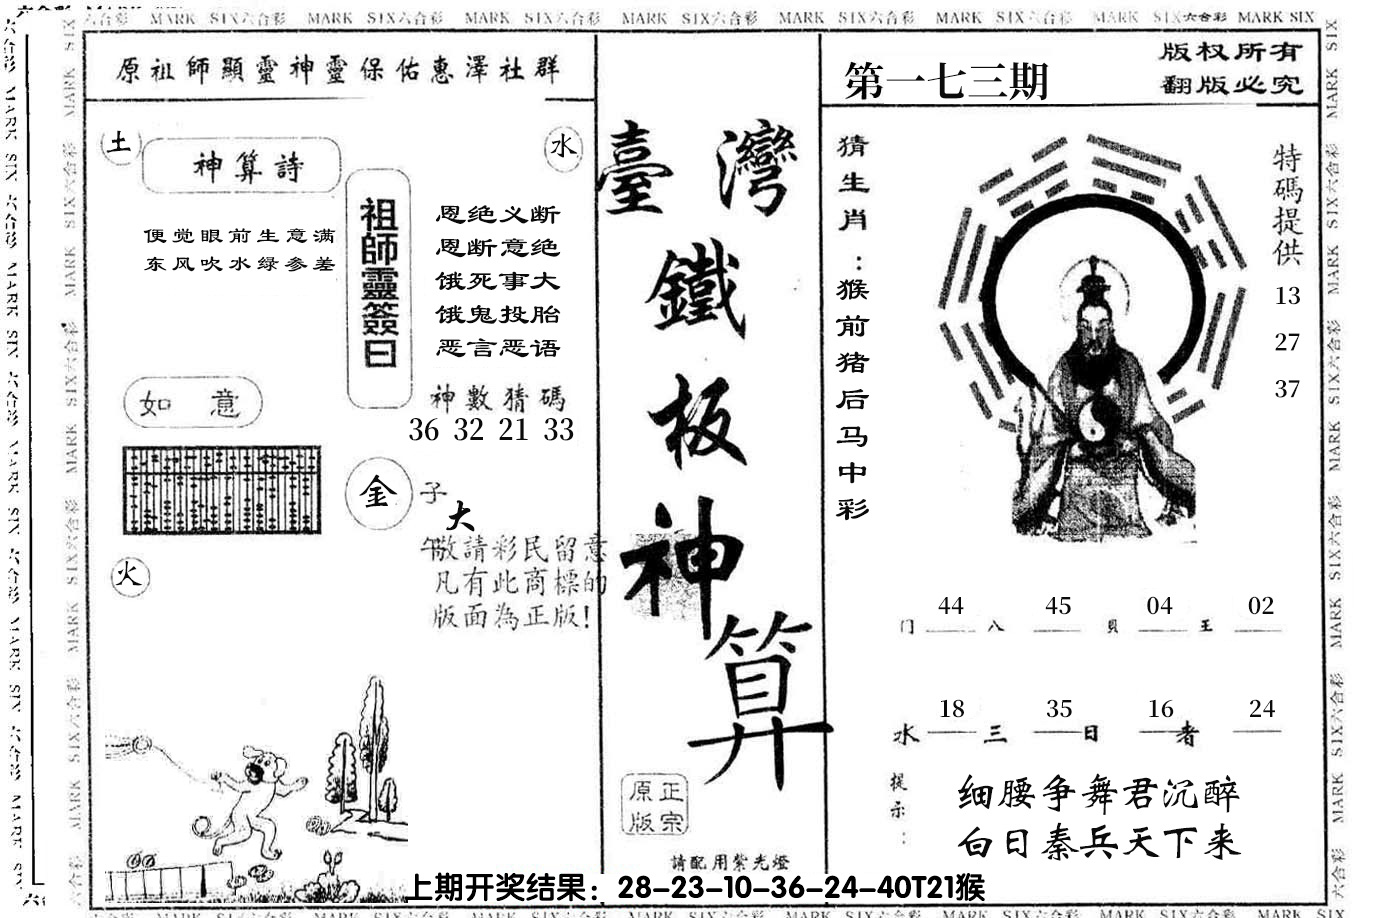 六合彩 MARK SIX六合彩 MARK SIX六合彩 MARK SIX六合彩 MARK SIX六合彩 MARK SIX六合彩 MARK SIX六合彩 MARK SIX六合彩 MARK SIX
原祖師顯靈神靈保佑惠澤社群
土
神算詩
水
便觉眼前生意满
东风吹水绿参差
祖師靈簽曰
恩绝义断
恩断意绝
饿死事大
饿鬼投胎
恶言恶语
神數猜碼
36 32 21 33
如 意
金
子
大
午
敬請彩民留意
凡有此商標的
版面為正版!
火
臺灣
鐵
板
神
算
原正
版宗
請配用紫光燈
第一七三期
版权所有
翻版必究
猜生肖:猴前猪后马中彩
特碼提供
13
27
37
44 45 04 02
门 八 貝 王
18 35 16 24
水 三 日 者
提示:
细腰争舞君沉醉
白日秦兵天下来
上期开奖结果：28-23-10-36-24-40T21猴